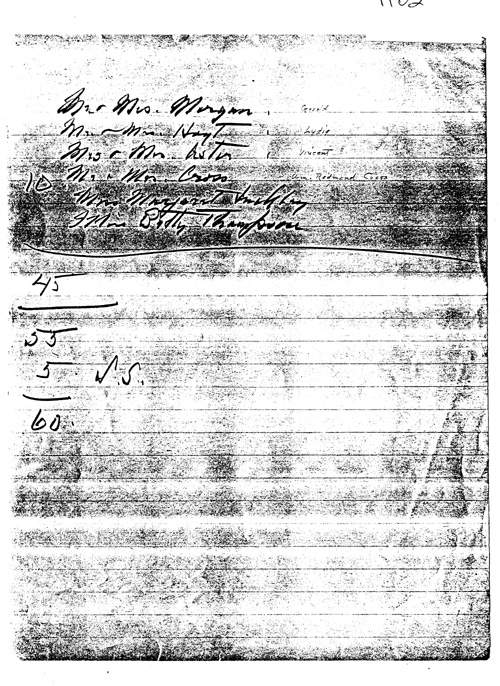 1102
Mr & Mrs. Morgan, Gerald
Mr & Mrs Hoyt, Lydie
Mrs & Mr. Astor, Vincent
10 Mr & Mrs. Cross - Redmond Cross
Miss Margaret
Miss Betty Thompson
45
55
5 N.S.
60